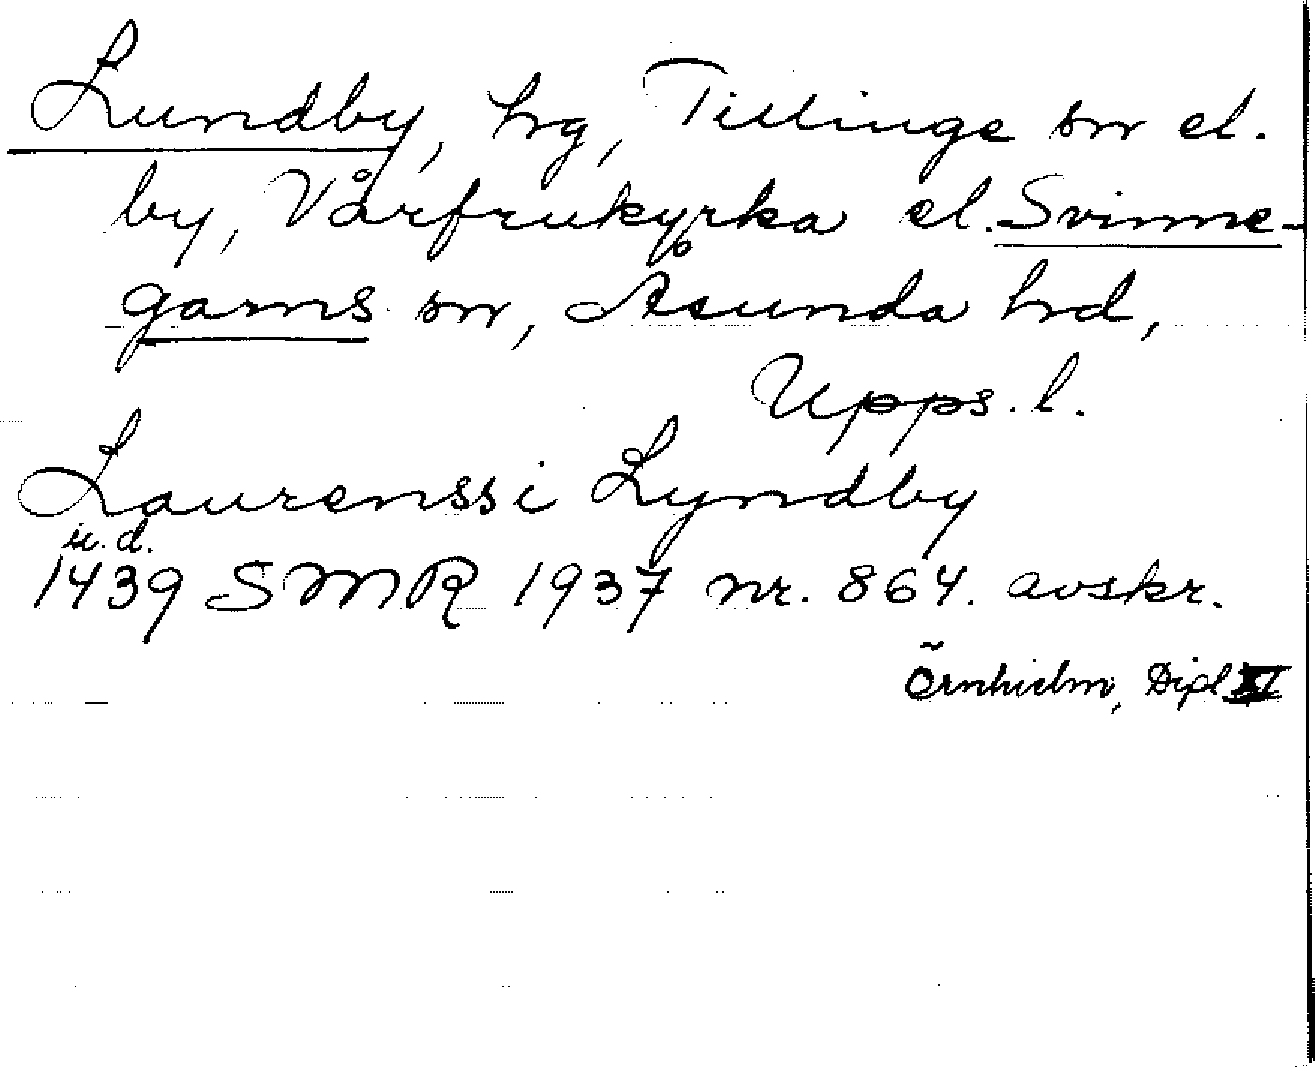 Lundby, hrg, Tillinge sn el.
by, Vårfrukyrka el. Svinne-
garns sn, Åsunda hrd,
Upps. l.
Laurenss i Lyndby
u.d.
1439 SMR 1937 nr. 864. avskr.
Örnhielm, Dipl